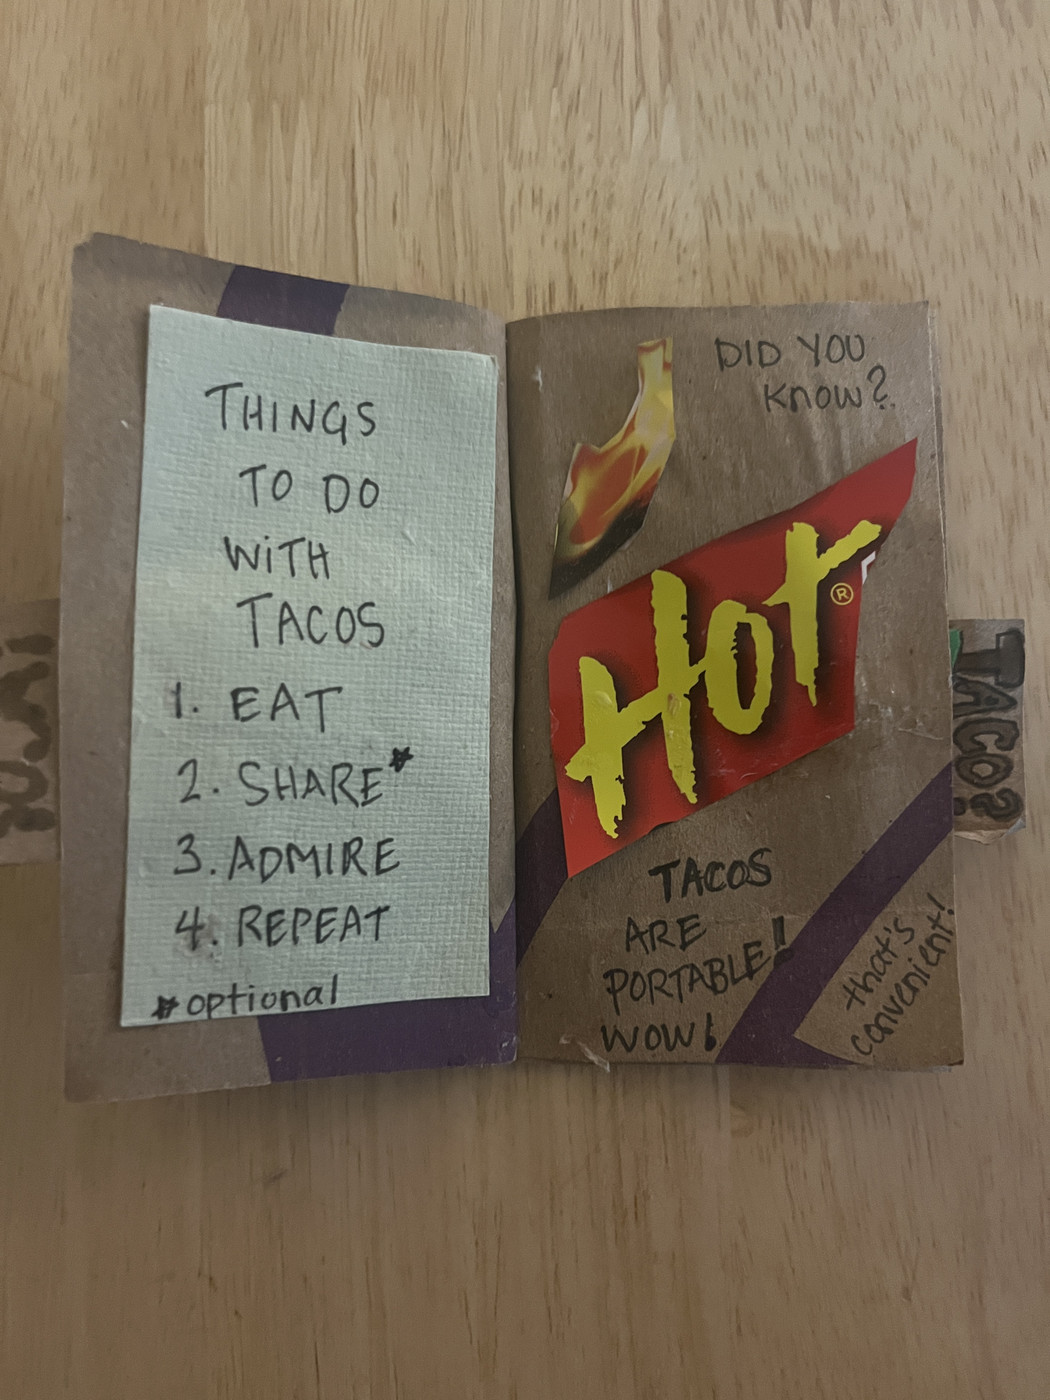 THINGS
TO DO
WITH
TACOS
1. EAT
2. SHARE*
3. ADMIRE
4. REPEAT
*optional
DID YOU
KNOW?
HOT®
TACOS
ARE
PORTABLE!
WOW!
that's
convenient!
TACO?